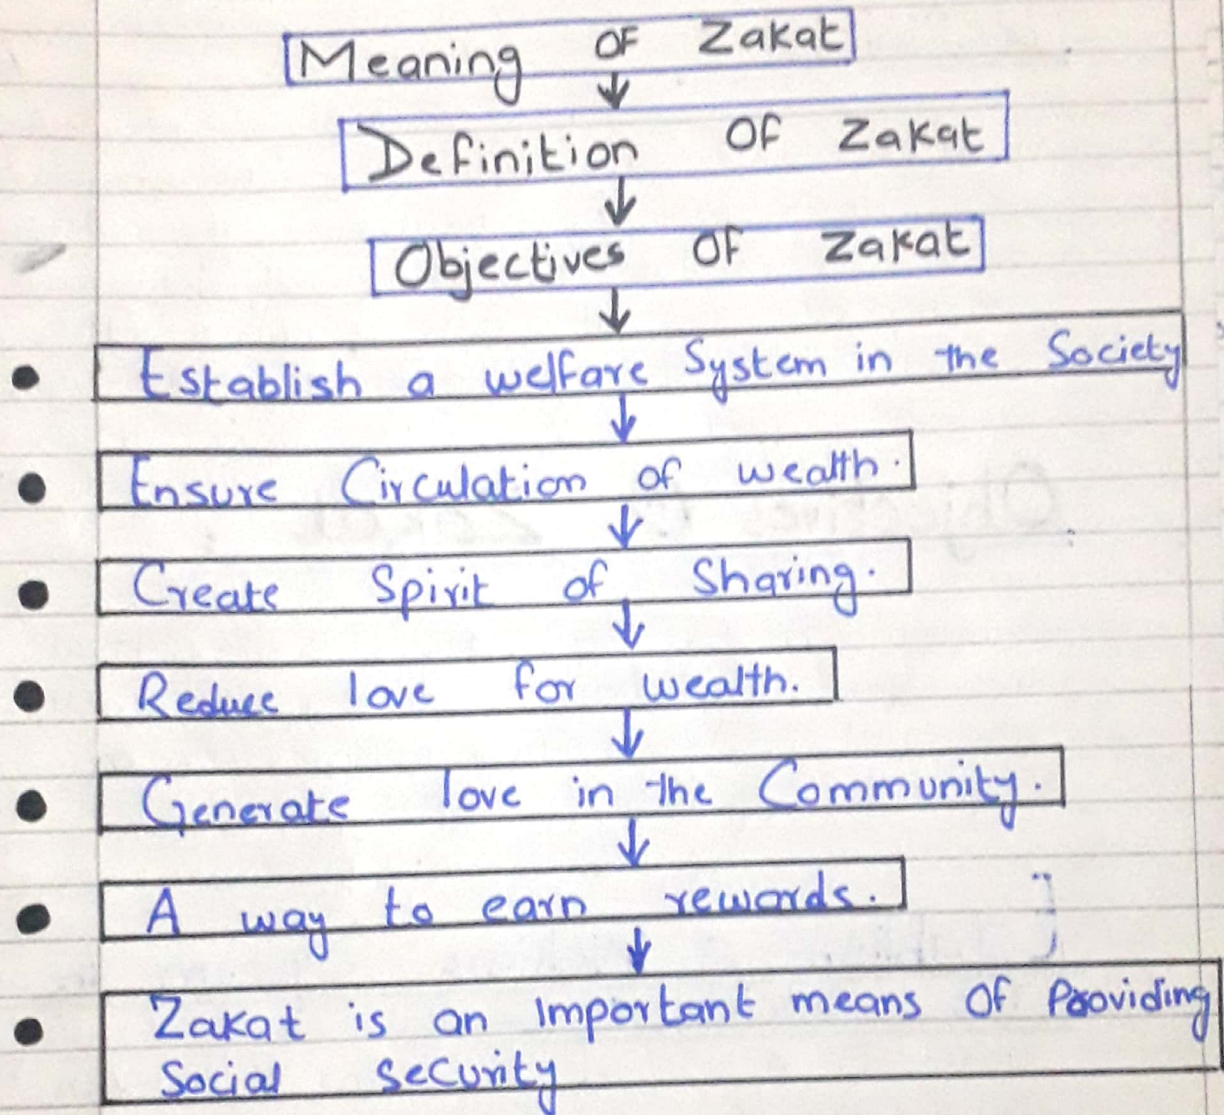 Meaning OF Zakat
Definition OF Zakat
Objectives OF Zakat
Establish a welfare System in the Society
Ensure Circulation of wealth.
Create Spirit of Sharing.
Reduce love for wealth.
Generate love in the Community.
A way to earn rewards.
Zakat is an Important means OF Providing
Social security